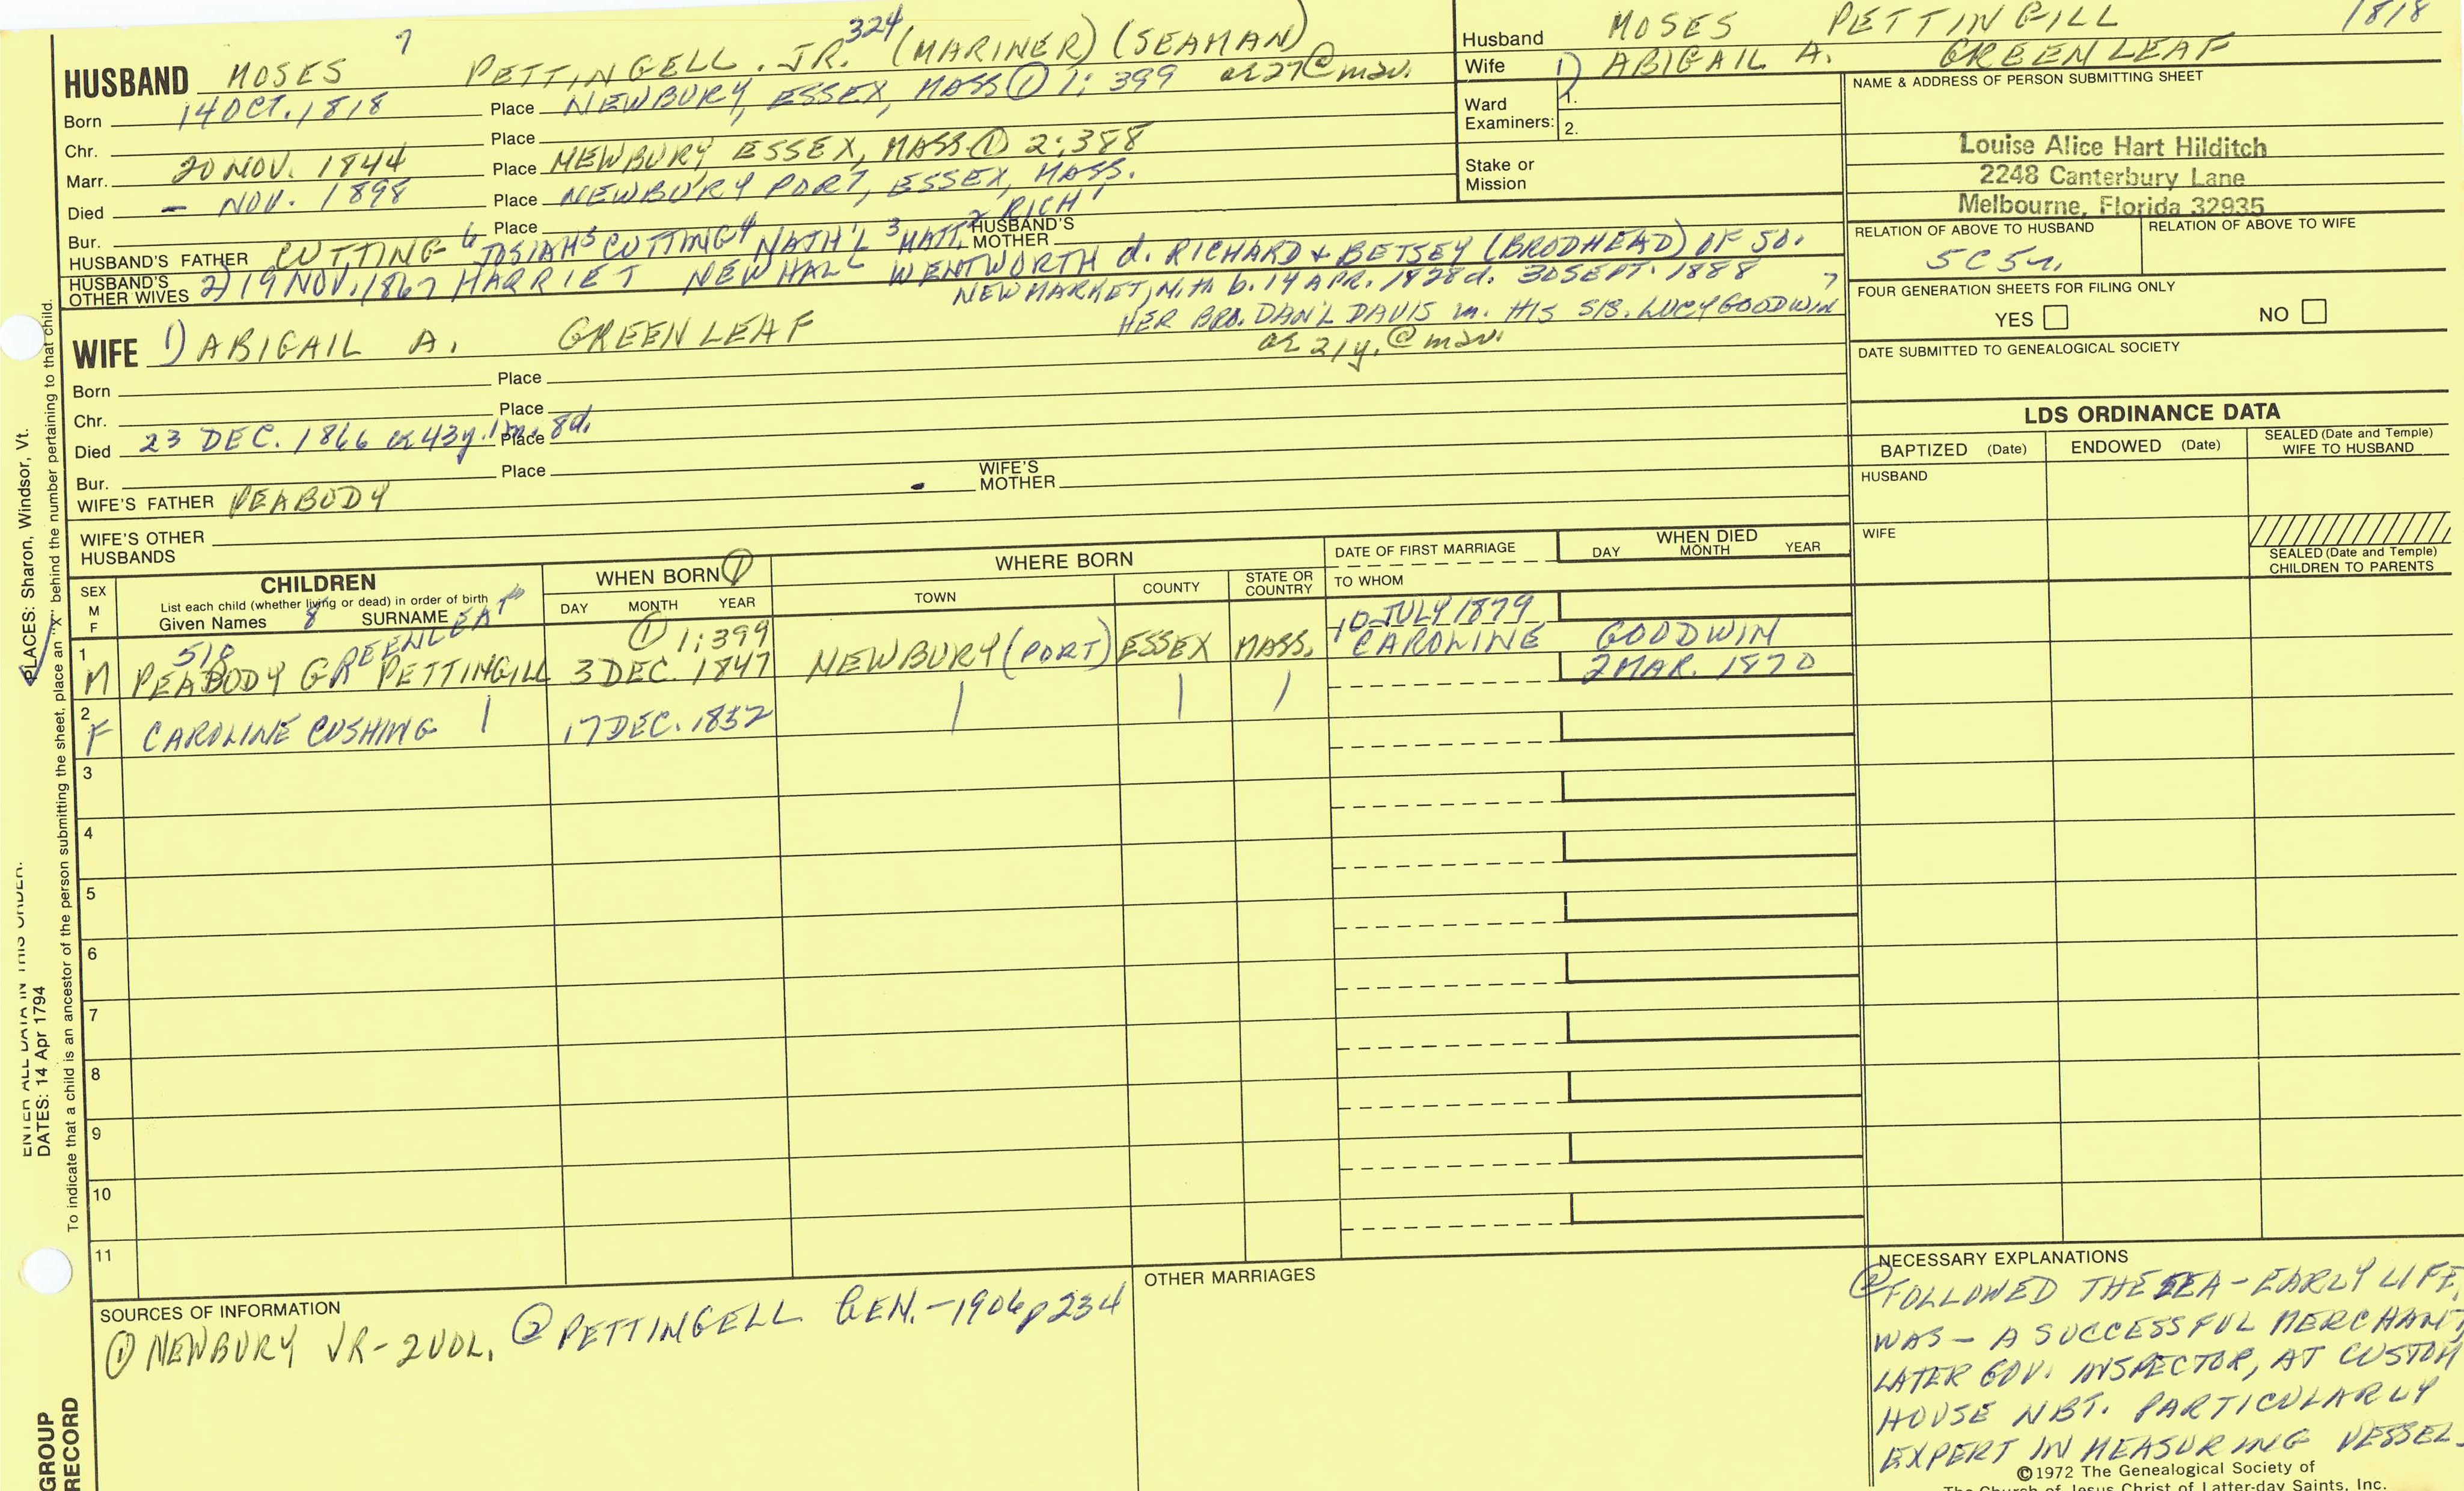 HUSBAND MOSES 7 PETTINGELL. JR. 324 (MARINER) (SEAMAN)
Born 14 OCT. 1818 Place NEWBURY, ESSEX, MASS ① 1: 399 ae 27 @ mar.
Chr. Place
Marr. 20 NOV. 1844 Place NEWBURY ESSEX, MASS. ① 2: 388
Died - NOV. 1898 Place NEWBURY PORT, ESSEX, MASS.
Bur. Place
HUSBAND'S FATHER CUTTING 6 JOSIAH 5 CUTTING 4 NATH'L 3 MATT. 2 RICH 1 HUSBAND'S MOTHER
HUSBAND'S OTHER WIVES 2) 19 NOV. 1867 HARRIET NEWHALL WENTWORTH d. RICHARD & BETSEY (BRODHEAD) OF SO.
NEWMARKET, N.H. b. 14 APR. 1828 d. 30 SEPT. 1888
HER BRO. DAN'L DAVIS m. HIS SIS. LUCY GOODWIN 7
WIFE 1) ABIGAIL A. GREENLEAF ae 21y. @ mar.
Born Place
Chr. Place
Died 23 DEC. 1866 ae 43y. 1m. 8d. Place
Bur. Place
WIFE'S FATHER PEABODY WIFE'S MOTHER
WIFE'S OTHER HUSBANDS
Husband MOSES PETTINGILL 1818
Wife 1) ABIGAIL A. GREENLEAF
Ward Examiners: 1.
2.
Stake or Mission
NAME & ADDRESS OF PERSON SUBMITTING SHEET
Louise Alice Hart Hilditch
2248 Canterbury Lane
Melbourne, Florida 32935
RELATION OF ABOVE TO HUSBAND RELATION OF ABOVE TO WIFE
5C5r.
FOUR GENERATION SHEETS FOR FILING ONLY
YES NO
DATE SUBMITTED TO GENEALOGICAL SOCIETY
LDS ORDINANCE DATA
BAPTIZED (Date) ENDOWED (Date) SEALED (Date and Temple) WIFE TO HUSBAND
HUSBAND
WIFE
SEALED (Date and Temple) CHILDREN TO PARENTS
SEX M F
CHILDREN
List each child (whether living or dead) in order of birth
Given Names 8 SURNAME
WHEN BORN ①
DAY MONTH YEAR
WHERE BORN
TOWN COUNTY STATE OR COUNTRY
DATE OF FIRST MARRIAGE
TO WHOM
WHEN DIED
DAY MONTH YEAR
1 M 518 PEABODY GREENLEAF PETTINGILL ① 1: 399 3 DEC. 1847 NEWBURY (PORT) ESSEX MASS. 10 JULY 1879 CAROLINE GOODWIN
2 F CAROLINE CUSHING | 17 DEC. 1852 | | | 2 MAR. 1870
3
4
5
6
7
8
9
10
11
SOURCES OF INFORMATION
① NEWBURY VR-2VOL. ② PETTINGELL GEN.-1906 p 234
OTHER MARRIAGES
NECESSARY EXPLANATIONS
② FOLLOWED THE SEA - EARLY LIFE,
WAS - A SUCCESSFUL MERCHANT,
LATER GOV. INSPECTOR, AT CUSTOM
HOUSE NBT. PARTICULARLY
EXPERT IN MEASURING VESSEL.
©1972 The Genealogical Society of
The Church of Jesus Christ of Latter-day Saints, Inc.
ENTER ALL DATA IN THIS ORDER.
DATES: 14 Apr 1794
PLACES: Sharon, Windsor, Vt.
To indicate that a child is an ancestor of the person submitting the sheet, place an "X" behind the number pertaining to that child.
GROUP
RECORD